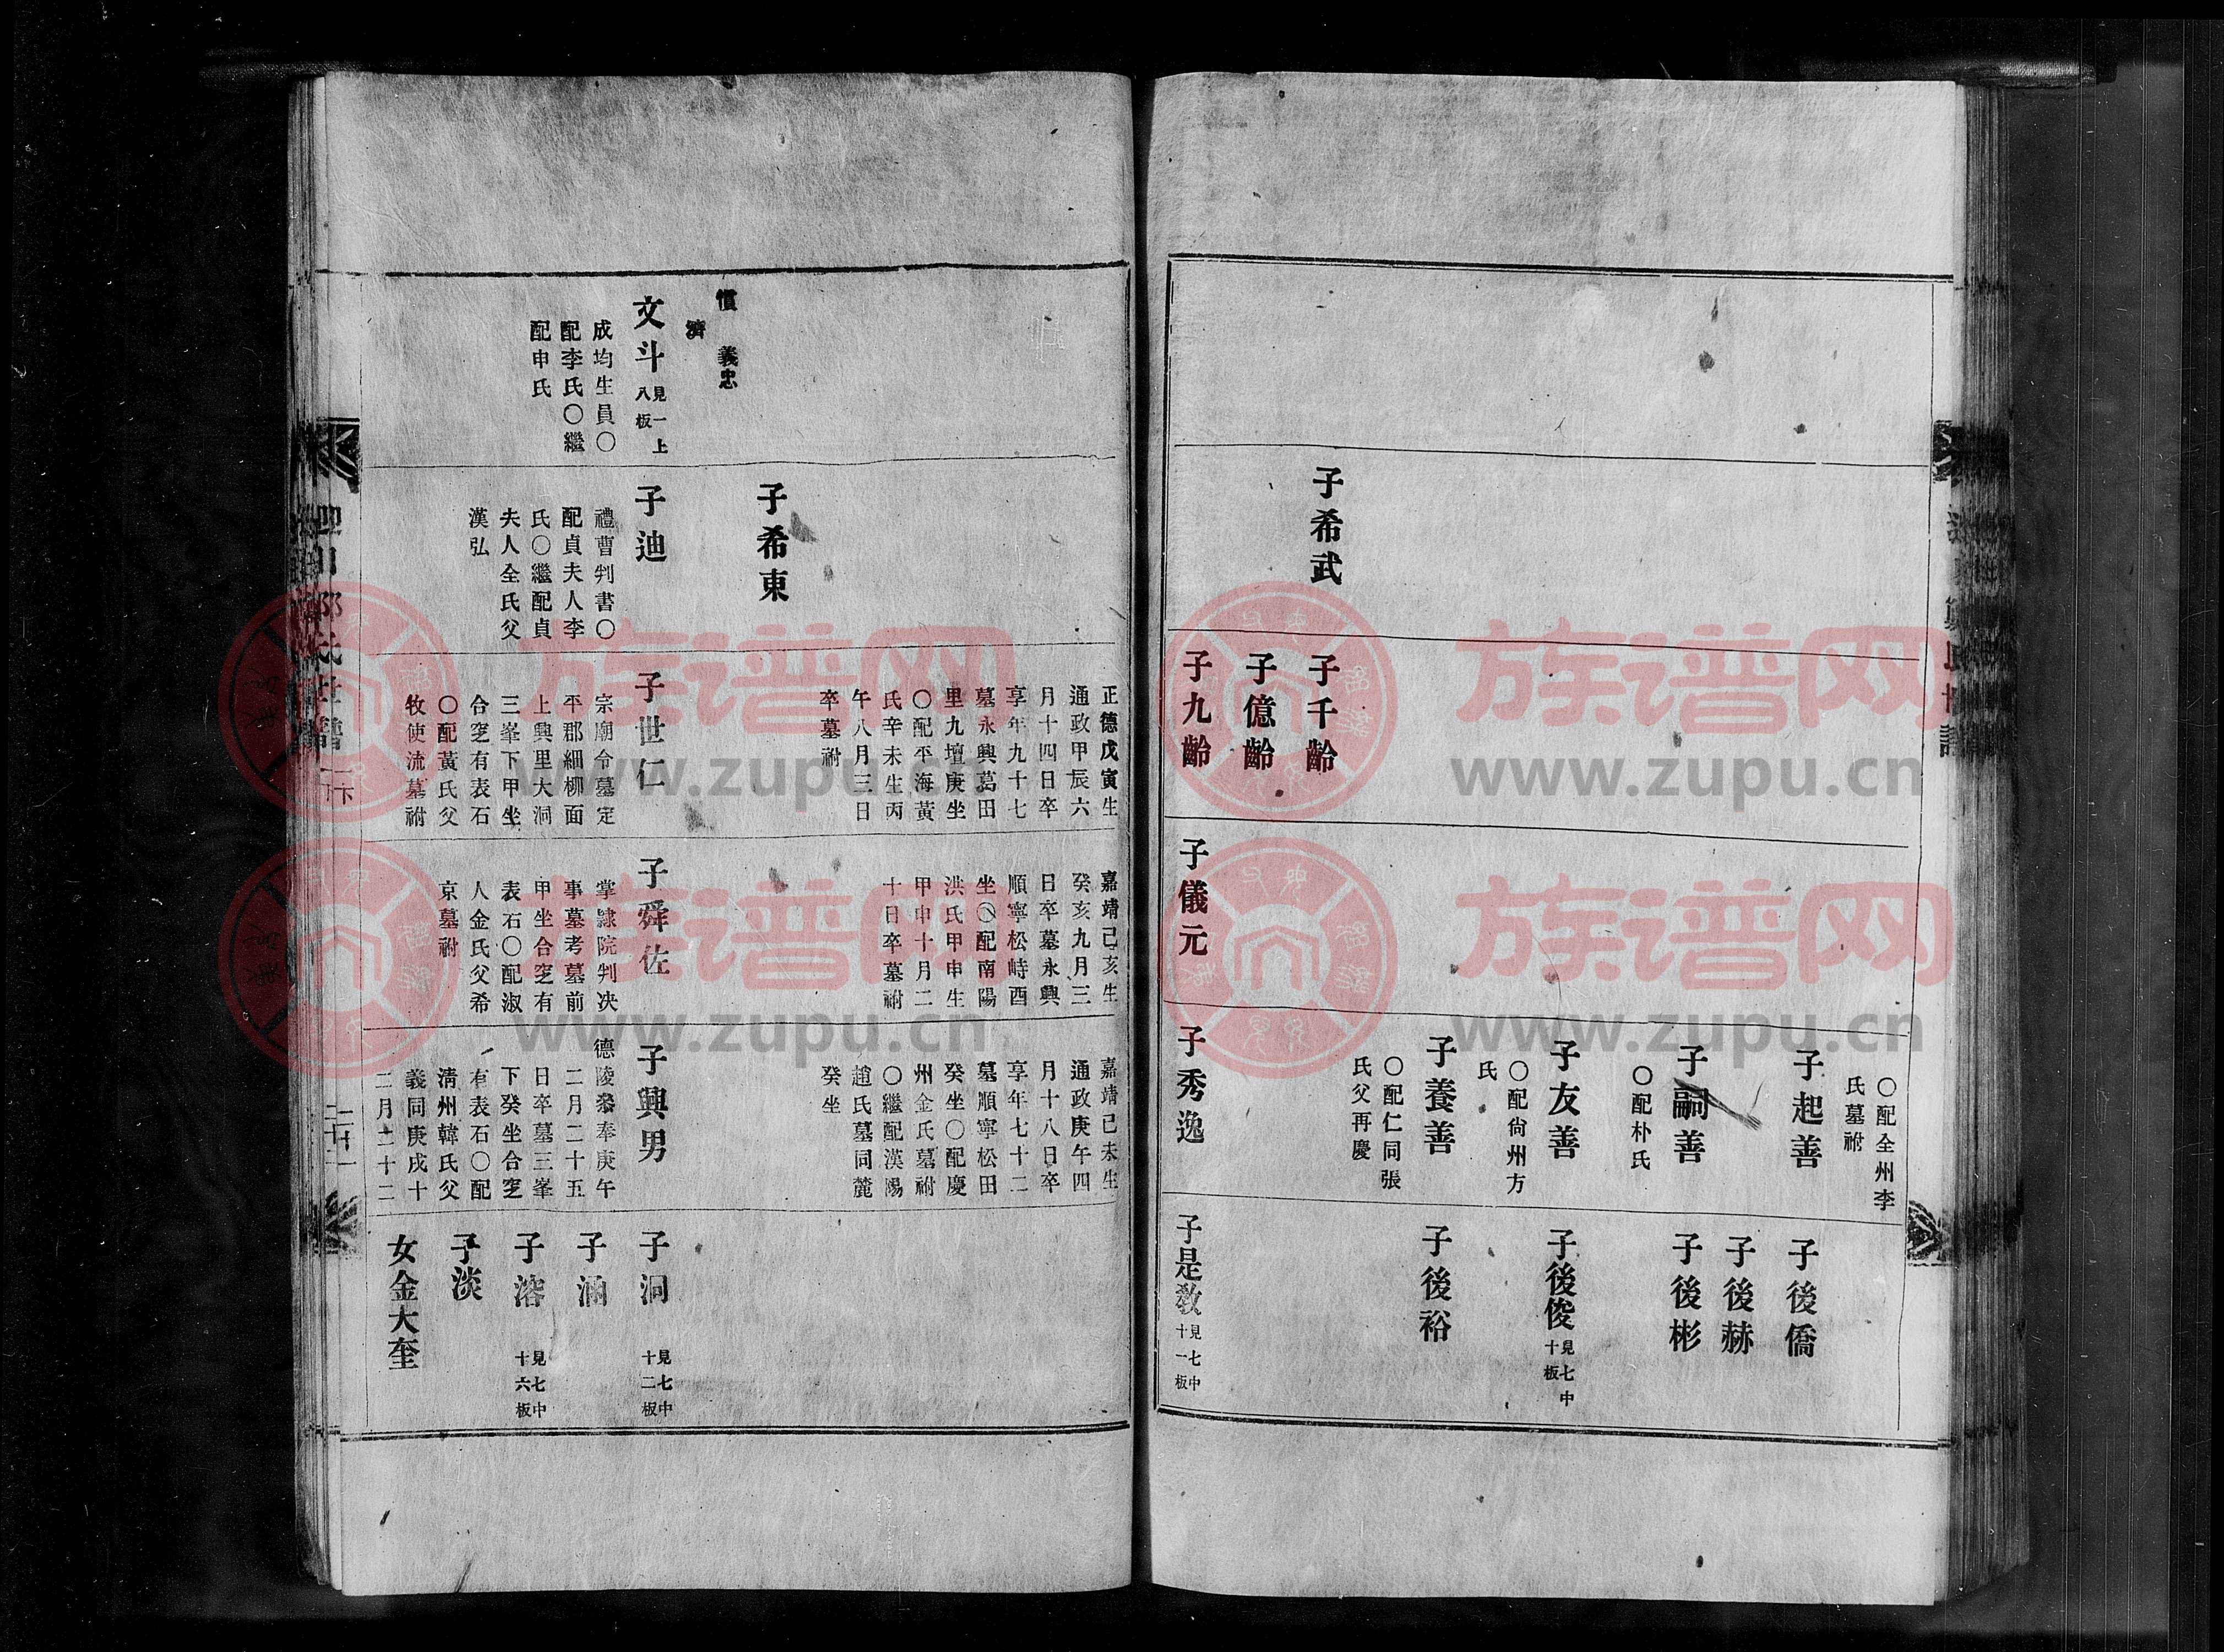 子希武
子千齡
子億齡
子九齡
子儀元
〇配全州李
氏墓祔
子起善
子嗣善
〇配朴氏
子友善
〇配尙州方
氏
子養善
〇配仁同張
氏父再慶
子秀逸
子後僑
子後赫
子後彬
子後俊
見七中
十板
子後裕
子是敎
見七中
十一板
義忠
濟
文斗
見一上
八板
成均生員〇
配李氏〇繼
配申氏
子希東
子迪
禮曹判書〇
配貞夫人李
氏〇繼配貞
夫人全氏父
漢弘
正德戊寅生
通政甲辰六
月十四日卒
享年九十七
墓永興葛田
里九壇庚坐
〇配平海黃
氏辛未生丙
午八月三日
卒墓祔
子世仁
宗廟令墓定
平郡細柳面
上興里大洞
三峯下甲坐
合窆有表石
〇配黃氏父
牧使流墓祔
嘉靖己亥生
癸亥九月三
日卒墓永興
順寧松峙酉
坐〇配南陽
洪氏甲申生
甲申十月二
十日卒墓祔
子舜佐
掌隷院判决
事墓考墓前
甲坐合窆有
表石〇配淑
人金氏父希
京墓祔
嘉靖己未生
通政庚午四
月十八日卒
享年七十二
墓順寧松田
癸坐〇配慶
州金氏墓祔
〇繼配漢陽
趙氏墓同麓
癸坐
子興男
德陵叅奉庚午
二月二十五
日卒墓三峯
下癸坐合窆
有表石〇配
淸州韓氏父
義同庚戌十
二月二十二
子洞
見七中
十二板
子涵
子溶
見七中
十六板
子淡
女金大奎
氏世譜
一下
族谱网
www.zupu.cn
族谱网
www.zupu.cn
族谱网
www.zupu.cn
族谱网
www.zupu.cn